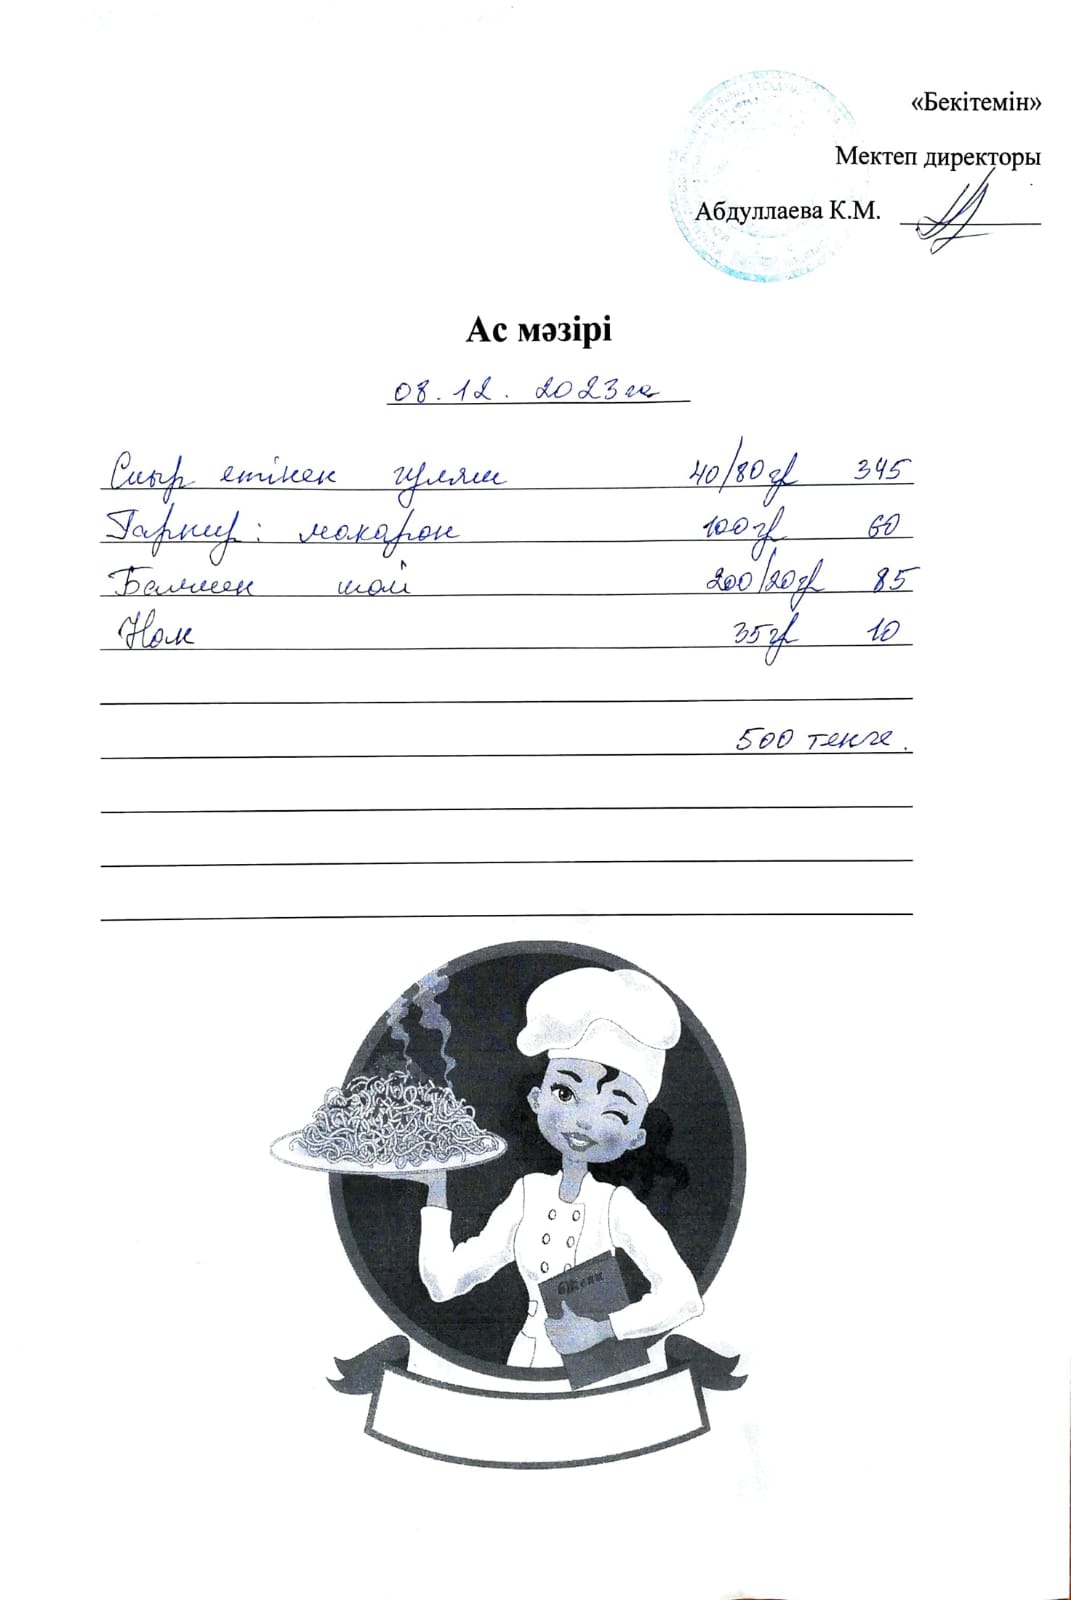 «Бекітемін»
Мектеп директоры
Абдуллаева К.М.
Ас мәзірі
08.12.2023 ж
Сиыр етінен гуляш 40/80гр 345
Гарнир: макарон 100гр 60
Балмен шай 200/20гр 85
Нан 35гр 10
500 тенге.
Меню